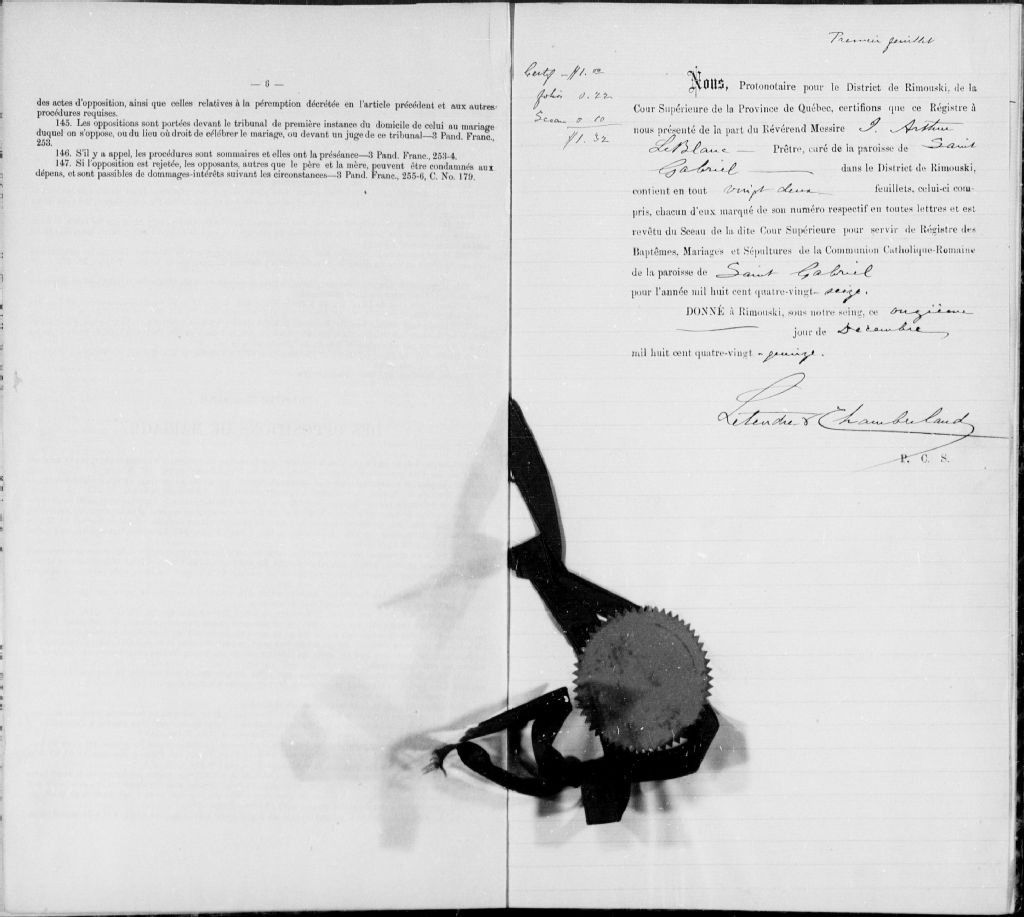 — 8 —
des actes d'opposition, ainsi que celles relatives à la péremption décrétée en l'article précédent et aux autres
procédures requises.
145. Les oppositions sont portées devant le tribunal de première instance du domicile de celui au mariage
duquel on s'oppose, ou du lieu où droit de célébrer le mariage, ou devant un juge de ce tribunal—3 Pand. Franc.,
253.
146. S'il y a appel, les procédures sont sommaires et elles ont la préséance—3 Pand. Franc., 253-4.
147. Si l'opposition est rejetée, les opposants, autres que le père et la mère, peuvent être condamnés aux
dépens, et sont passibles de dommages-intérêts suivant les circonstances—3 Pand. Franc., 255-6, C. No. 179.
Premier feuillet
Certif — $1.00
folios 0.22
Sceau 0 10
$1.32
Nous, Protonotaire pour le District de Rimouski, de la
Cour Supérieure de la Province de Québec, certifions que ce Régistre à
nous présenté de la part du Révérend Messire J. Arthur
LeBlanc — Prêtre, curé de la paroisse de Saint
Gabriel — dans le District de Rimouski,
contient en tout vingt deux feuillets, celui-ci com-
pris, chacun d'eux marqué de son numéro respectif en toutes lettres et est
revêtu du Sceau de la dite Cour Supérieure pour servir de Régistre des
Baptêmes, Mariages et Sépultures de la Communion Catholique-Romaine
de la paroisse de Saint Gabriel
pour l'année mil huit cent quatre-vingt- seize.
DONNÉ à Rimouski, sous notre seing, ce onzième
— jour de Décembre,
mil huit cent quatre-vingt - quinze.
Letendre & Chamberland
P. C. S.